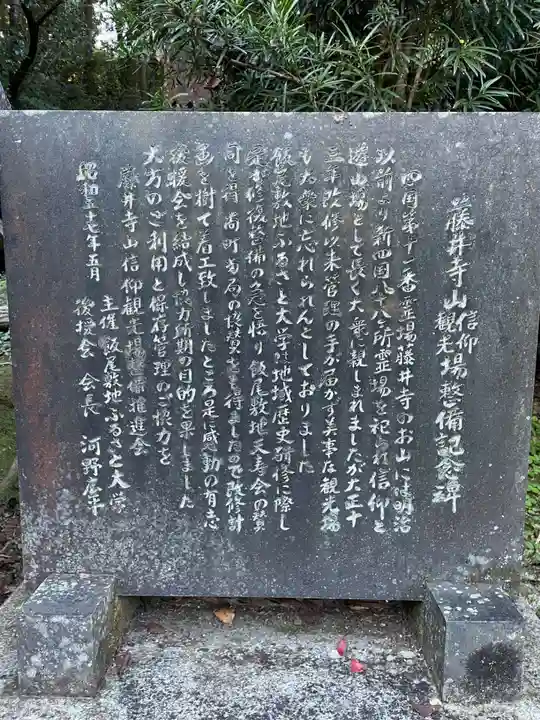 藤井寺山信仰観光場整備記念碑
四国第十一番霊場藤井寺のお山には明治
以前より新四国八十八ヶ所霊場を祀られ信仰と
遊山場として長く大衆に親しまれましたが大正十
三年改修以来管理の手が届かず美事な観光場
も大衆に忘れられんとしておりました
飯尾敷地ふるさと大学は地域歴史研修に際し
修復整備の急を悟り飯尾敷地天寿会の賛
同を得 尚町当局の協賛をも得ましたので改修計
画を樹て着工致しましたところ是に感動の有志
後援会を結成し協力所期の目的を果しました
大方のご利用と保存管理のご協力を
藤井寺山信仰観光場整保推進会
昭和五十七年五月 主催 飯尾敷地ふるさと大学
後援会 会長 河野